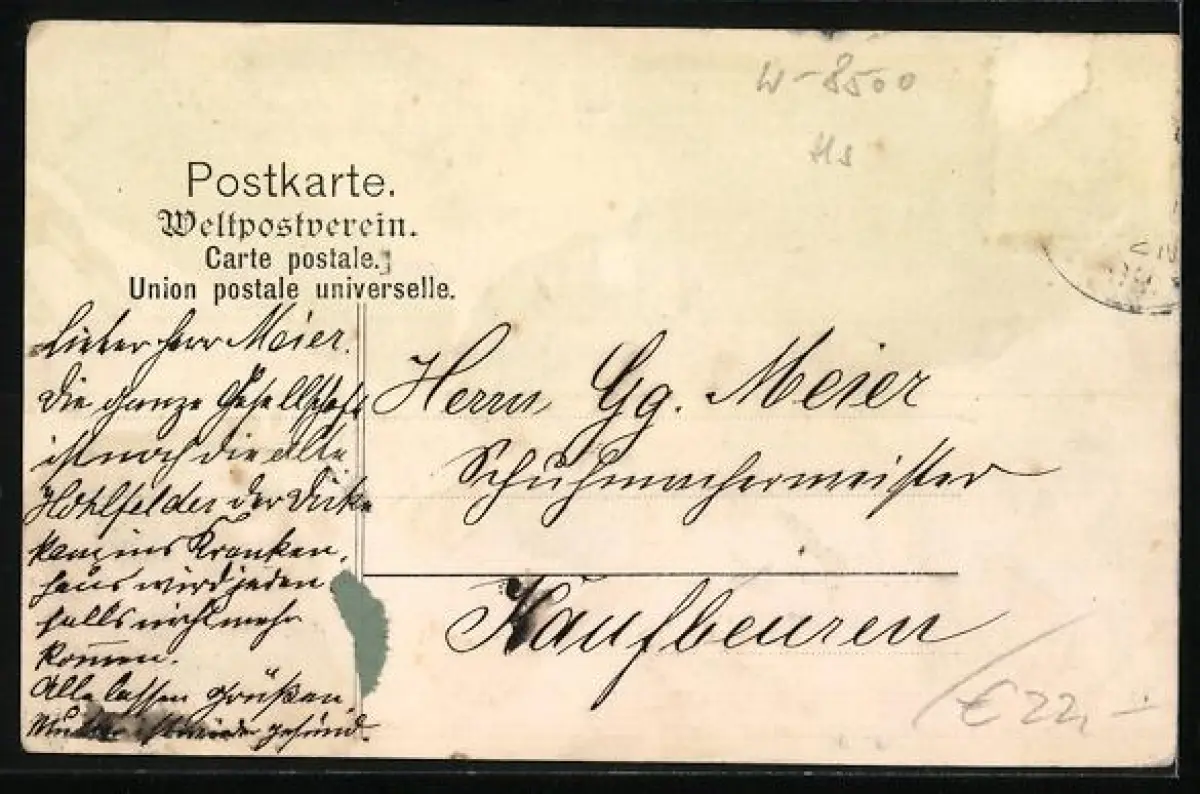 W-8500
Hs
Postkarte.
Weltpostverein.
Carte postale.
Union postale universelle.
Lieber Herr Meier.
Die ganze Gesellschaft
ist noch die alte
Hohlfelder der Dicke
kam ins Kranken,
haus wird jeden
falls nicht mehr
kommen.
Alle lassen grüßen.
Mutter ist wieder gesund.
Herrn Gg. Meier
Schuhmachermeister
Kaufbeuren
€ 22,-